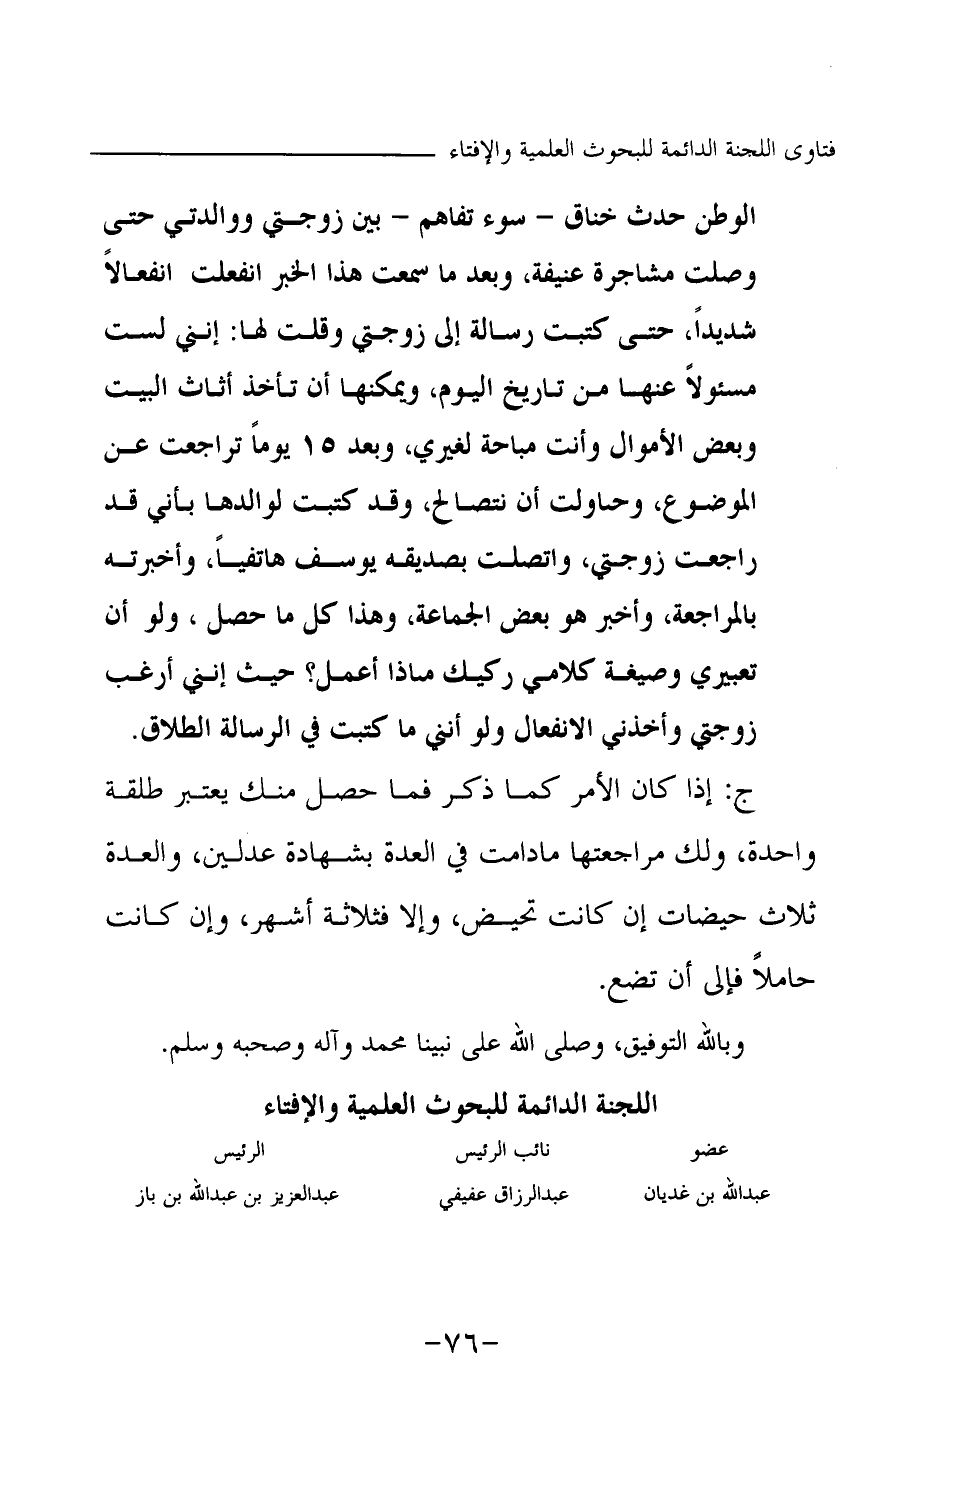 فتاوى اللجنة الدائمة للبحوث العلمية والإفتاء
الوطن حدث خناق – سوء تفاهم – بين زوجتي ووالدتي حتى
وصلت مشاجرة عنيفة، وبعد ما سمعت هذا الخبر انفعلت انفعالاً
شديداً، حتى كتبت رسالة إلى زوجتي وقلت لها: إنني لست
مسئولاً عنها من تاريخ اليوم، ويمكنها أن تأخذ أثاث البيت
وبعض الأموال وأنت مباحة لغيري، وبعد ١٥ يوماً تراجعت عن
الموضوع، وحاولت أن نتصالح، وقد كتبت لوالدها بأني قد
راجعت زوجتي، واتصلت بصديقه يوسف هاتفياً، وأخبرته
بالمراجعة، وأخبر هو بعض الجماعة، وهذا كل ما حصل ، ولو أن
تعبيري وصيغة كلامي ركيك ماذا أعمل؟ حيث إنني أرغب
زوجتي وأخذني الانفعال ولو أنني ما كتبت في الرسالة الطلاق.
ج: إذا كان الأمر كما ذكر فما حصل منك يعتبر طلقة
واحدة، ولك مراجعتها مادامت في العدة بشهادة عدلين، والعدة
ثلاث حيضات إن كانت تحيض، وإلا فثلاثة أشهر، وإن كانت
حاملاً فإلى أن تضع.
وبالله التوفيق، وصلى الله على نبينا محمد وآله وصحبه وسلم.
اللجنة الدائمة للبحوث العلمية والإفتاء
عضو نائب الرئيس الرئيس
عبدالله بن غديان عبدالرزاق عفيفي عبدالعزيز بن عبدالله بن باز
–٧٦–